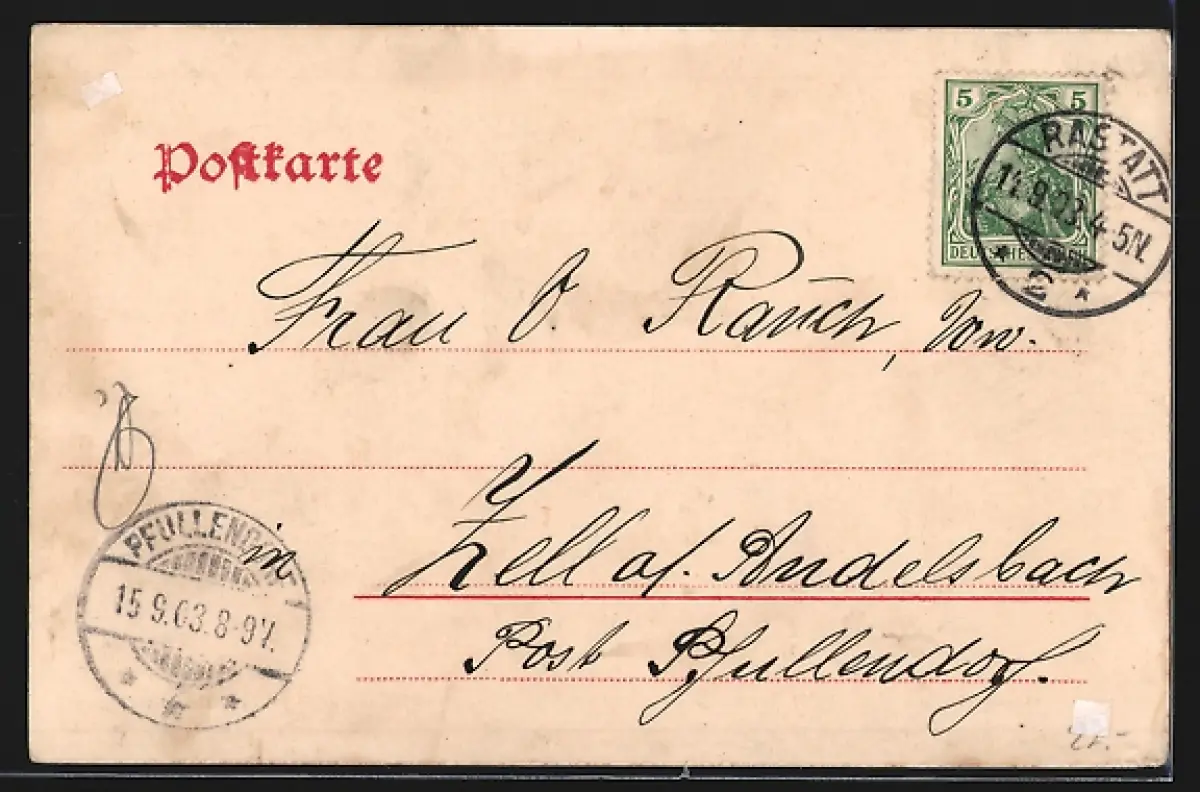 Postkarte
5 5
DEUTSCHES
RASTATT
14.9.03.4-5N.
* 2 *
Frau O. Rauch,
in Zell a/. Andelsbach
PFULLENDO
15.9.03.8-9V.
Post Pfullendorf.